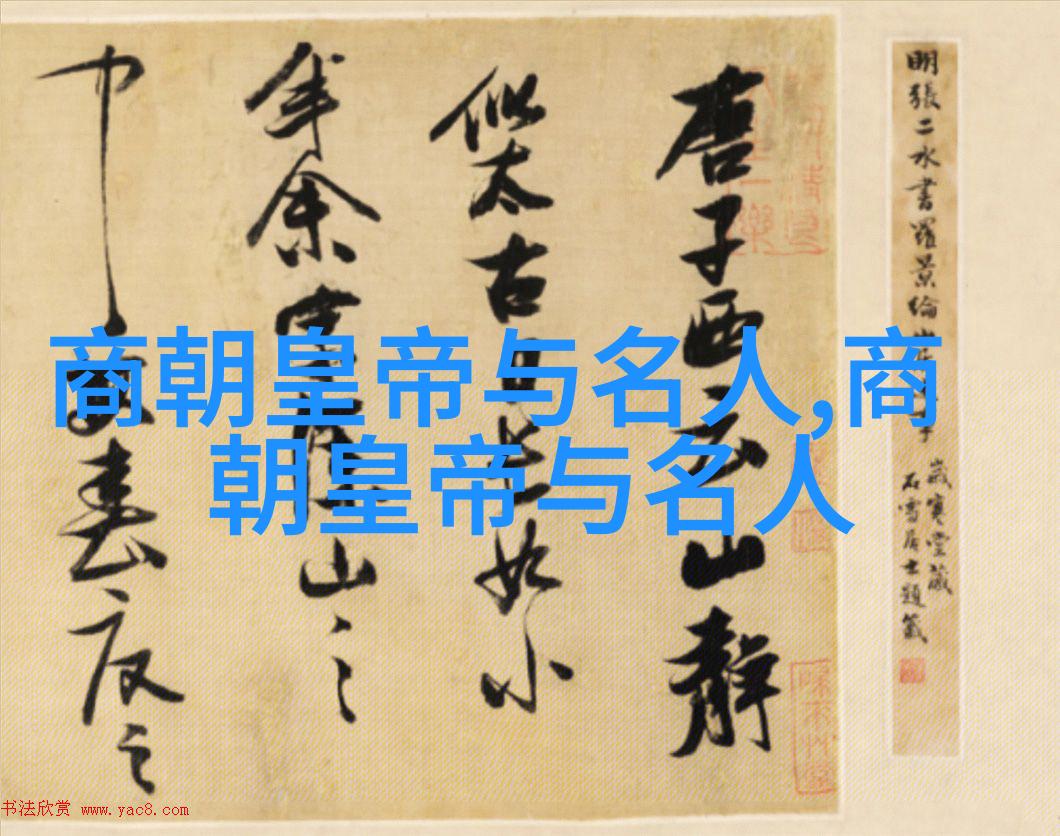 商朝皇帝与名人,商
朝皇帝与名人
明張二水書羅景綸
歲寒堂藏
石雪居士題籤
唐子西云山靜
似太古日長如小
年余家深山之
中每春夏之
书法欣赏 www.yac8.com